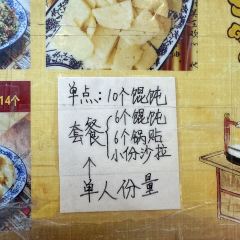 14个
单点：10个馄饨
套餐{6个馄饨
6个锅贴
小份沙拉
↑
单人份量